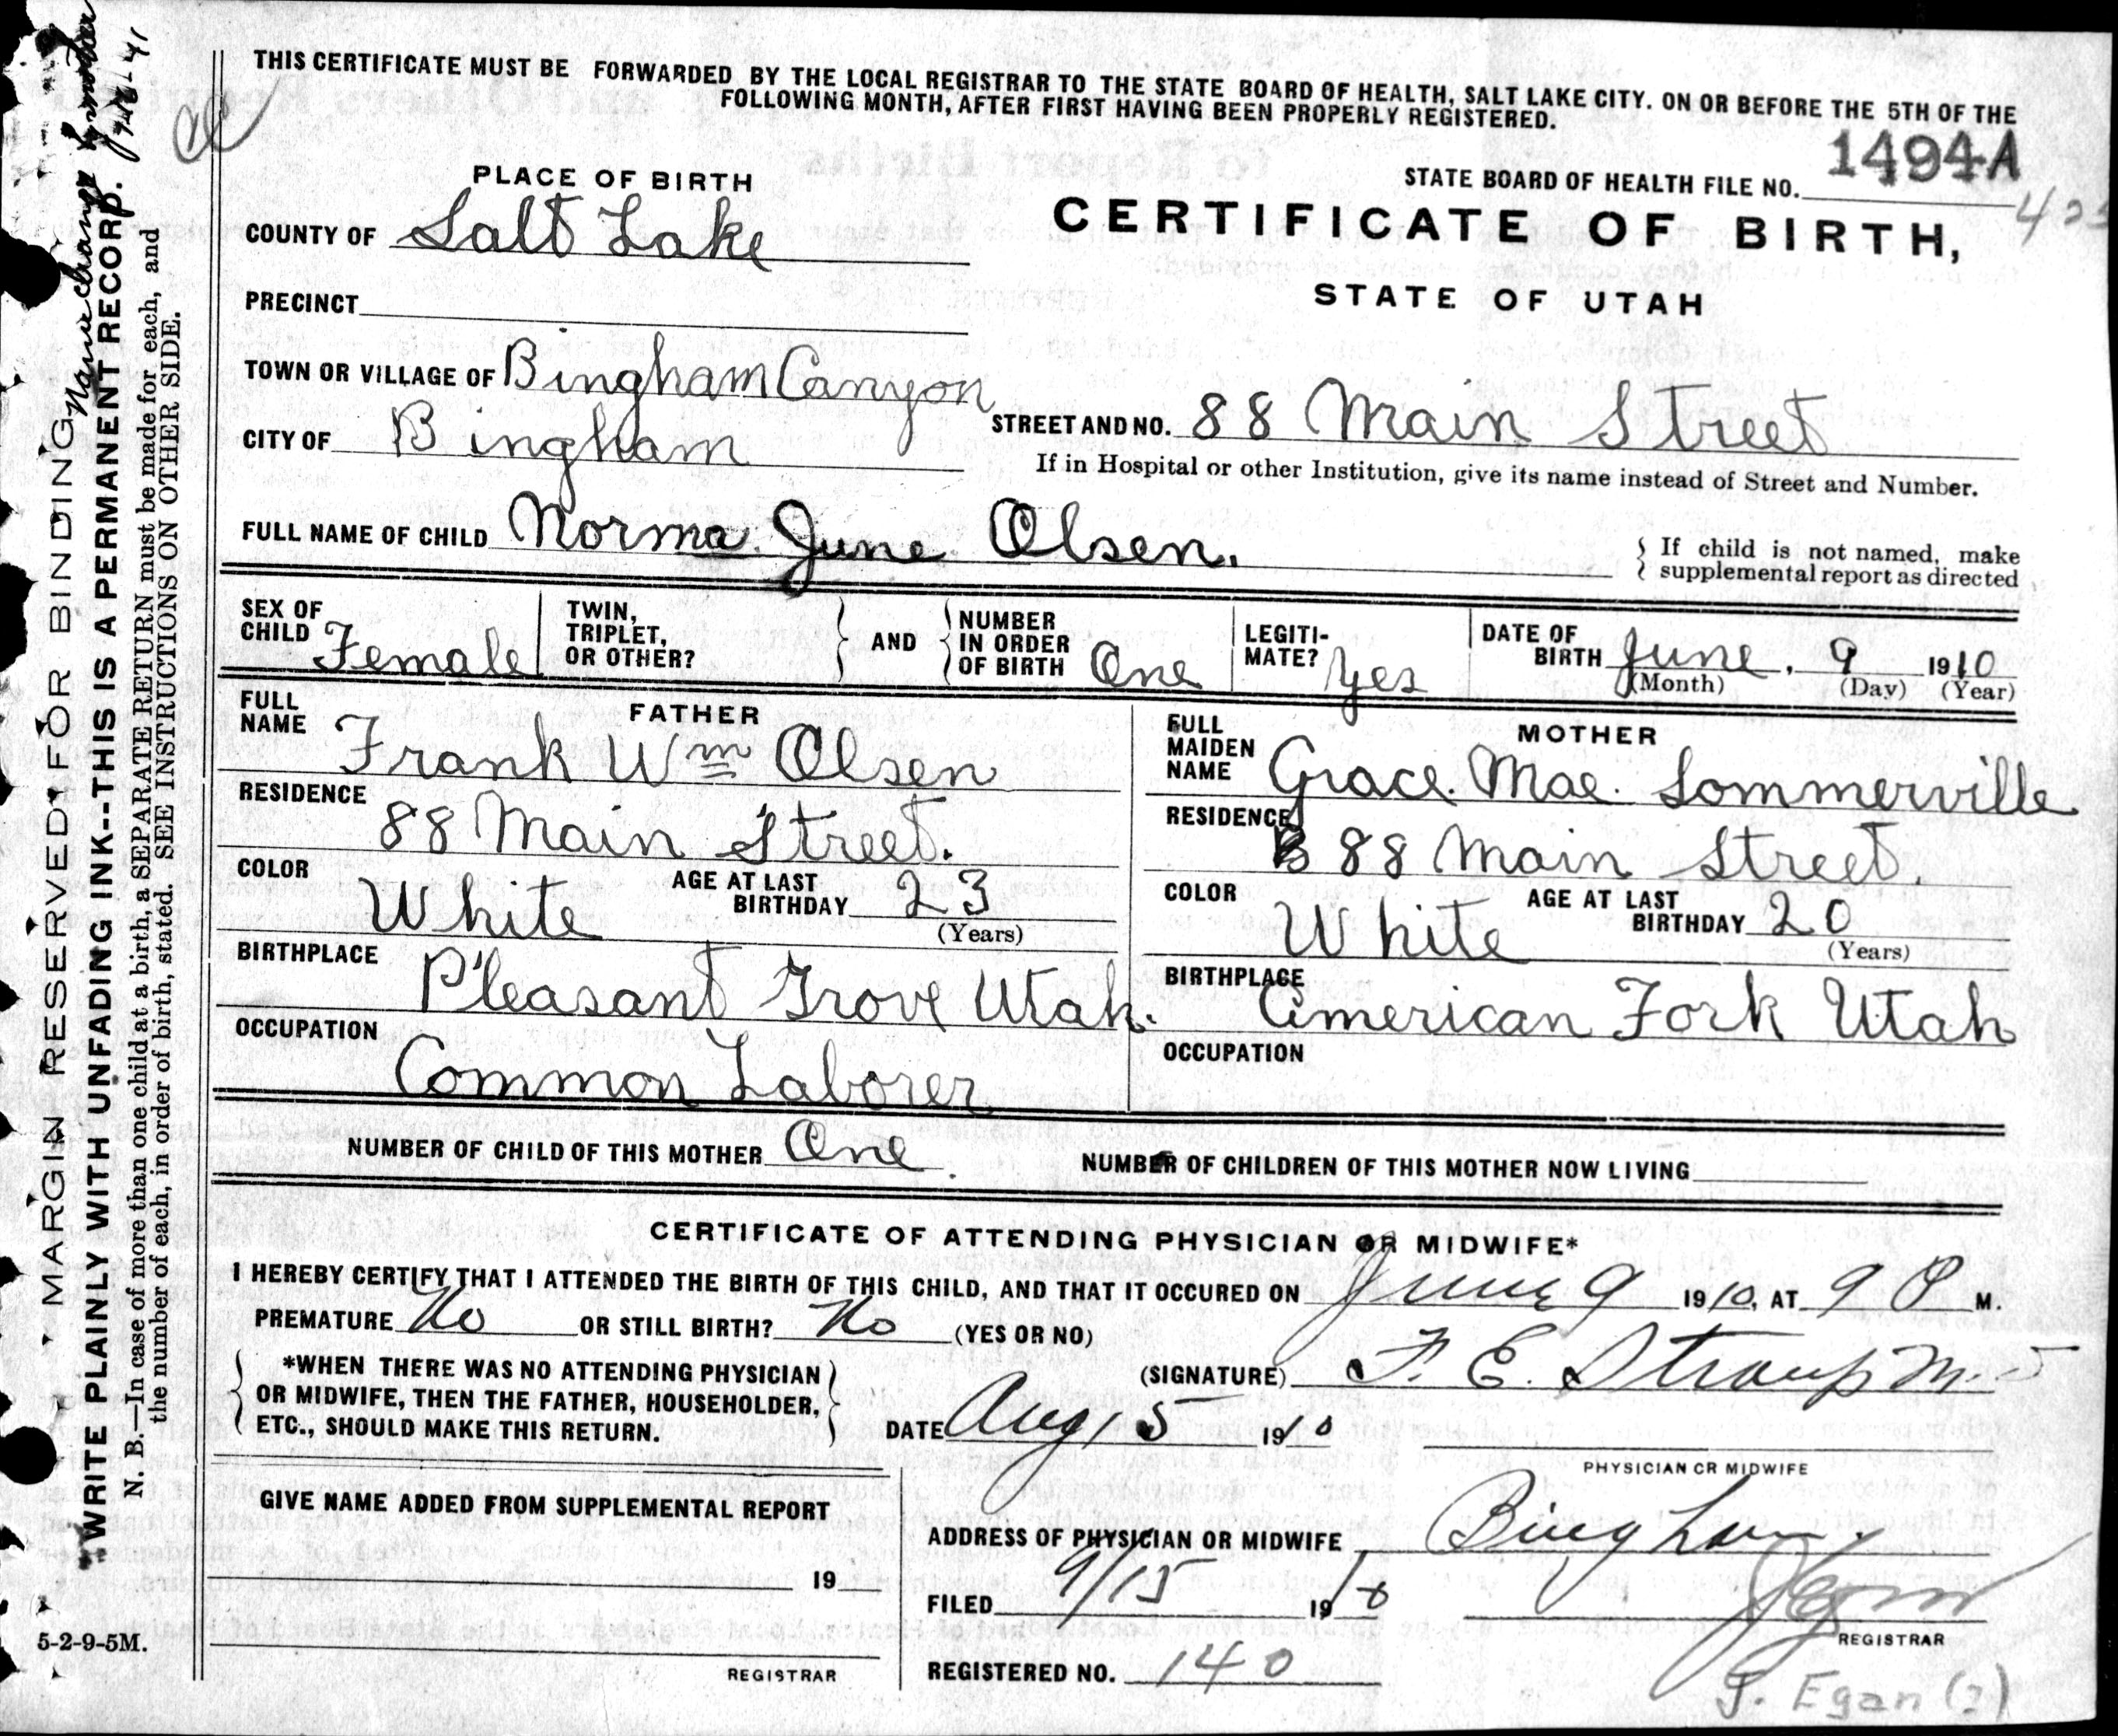 THIS CERTIFICATE MUST BE FORWARDED BY THE LOCAL REGISTRAR TO THE STATE BOARD OF HEALTH, SALT LAKE CITY. ON OR BEFORE THE 5TH OF THE
FOLLOWING MONTH, AFTER FIRST HAVING BEEN PROPERLY REGISTERED.
1494A
STATE BOARD OF HEALTH FILE NO.
PLACE OF BIRTH
CERTIFICATE OF BIRTH,
STATE OF UTAH
COUNTY OF Salt Lake
PRECINCT
TOWN OR VILLAGE OF Bingham Canyon
STREET AND NO. 88 Main Street
CITY OF Bingham
If in Hospital or other Institution, give its name instead of Street and Number.
FULL NAME OF CHILD Norma June Olsen.
If child is not named, make
supplemental report as directed
SEX OF CHILD Female
TWIN, TRIPLET, OR OTHER?
AND
NUMBER IN ORDER OF BIRTH One
LEGITI-MATE? Yes
DATE OF BIRTH June, 9 1910
(Month) (Day) (Year)
FATHER
FULL NAME Frank Wm Olsen
RESIDENCE 88 Main Street.
COLOR White
AGE AT LAST BIRTHDAY 23
(Years)
BIRTHPLACE Pleasant Grove Utah.
OCCUPATION Common Laborer
MOTHER
FULL MAIDEN NAME Grace. Mae. Sommerville
RESIDENCE 88 Main Street.
COLOR White
AGE AT LAST BIRTHDAY 20
(Years)
BIRTHPLACE American Fork Utah
OCCUPATION
NUMBER OF CHILD OF THIS MOTHER One.
NUMBER OF CHILDREN OF THIS MOTHER NOW LIVING
CERTIFICATE OF ATTENDING PHYSICIAN OR MIDWIFE*
I HEREBY CERTIFY THAT I ATTENDED THE BIRTH OF THIS CHILD, AND THAT IT OCCURED ON June 9 1910, AT 9 P M.
PREMATURE No OR STILL BIRTH? No (YES OR NO)
*WHEN THERE WAS NO ATTENDING PHYSICIAN
OR MIDWIFE, THEN THE FATHER, HOUSEHOLDER,
ETC., SHOULD MAKE THIS RETURN.
(SIGNATURE) F. E. Straup M.D
DATE Aug 15 1910
PHYSICIAN OR MIDWIFE
GIVE NAME ADDED FROM SUPPLEMENTAL REPORT
19
REGISTRAR
ADDRESS OF PHYSICIAN OR MIDWIFE Bingham.
FILED 9/15 1910
REGISTRAR
REGISTERED NO. 140
J. Egan (?)
5-2-9-5M.
MARGIN RESERVED FOR BINDING
Name change
WRITE PLAINLY WITH UNFADING INK--THIS IS A PERMANENT RECORD.
N. B.—In case of more than one child at a birth, a SEPARATE RETURN must be made for each, and
the number of each, in order of birth, stated. SEE INSTRUCTIONS ON OTHER SIDE.